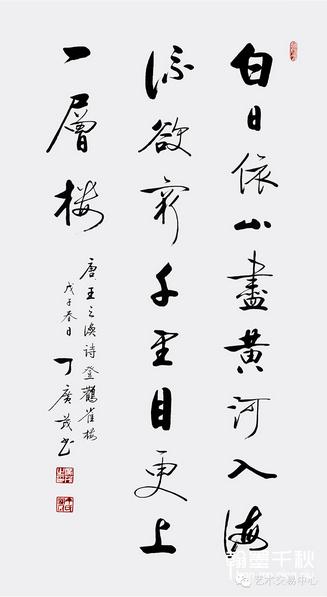 白日依山盡黄河入海
流欲穷千里目更上
一層楼
唐王之涣诗登鸛雀楼
戊子春日
丁廣茂书
翰墨千秋
艺术交易中心